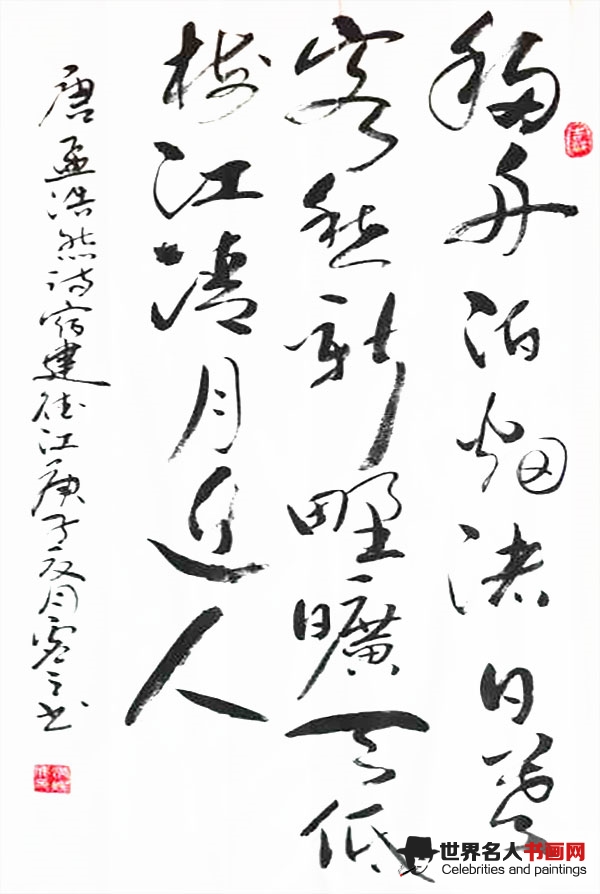 移舟泊烟渚日暮
客愁新野曠天低
樹江清月近人
唐孟浩然詩宿建德江庚子夏月雲之书
世界名人书画网
Celebrities and paintings